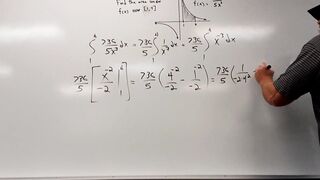 Find the area under
f(x) over [1,4]
f(x) = 736/5x³
∫₁⁴ 736/5x³ dx = 736/5 ∫₁⁴ 1/x³ dx = 736/5 ∫₁⁴ x⁻³ dx
736/5 [x⁻²/-2 |₁⁴] = 736/5 (4⁻²/-2 - 1⁻²/-2) = 736/5 (1/-2·4²